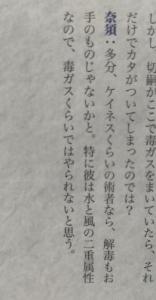 しかし、切嗣がここで毒ガスをまいていたら、それ
だけでカタがついてしまったのでは？
奈須：多分、ケイネスくらいの術者なら、解毒もお
手のものじゃないかと。特に彼は水と風の二重属性
なので、毒ガスくらいではやられないと思う。